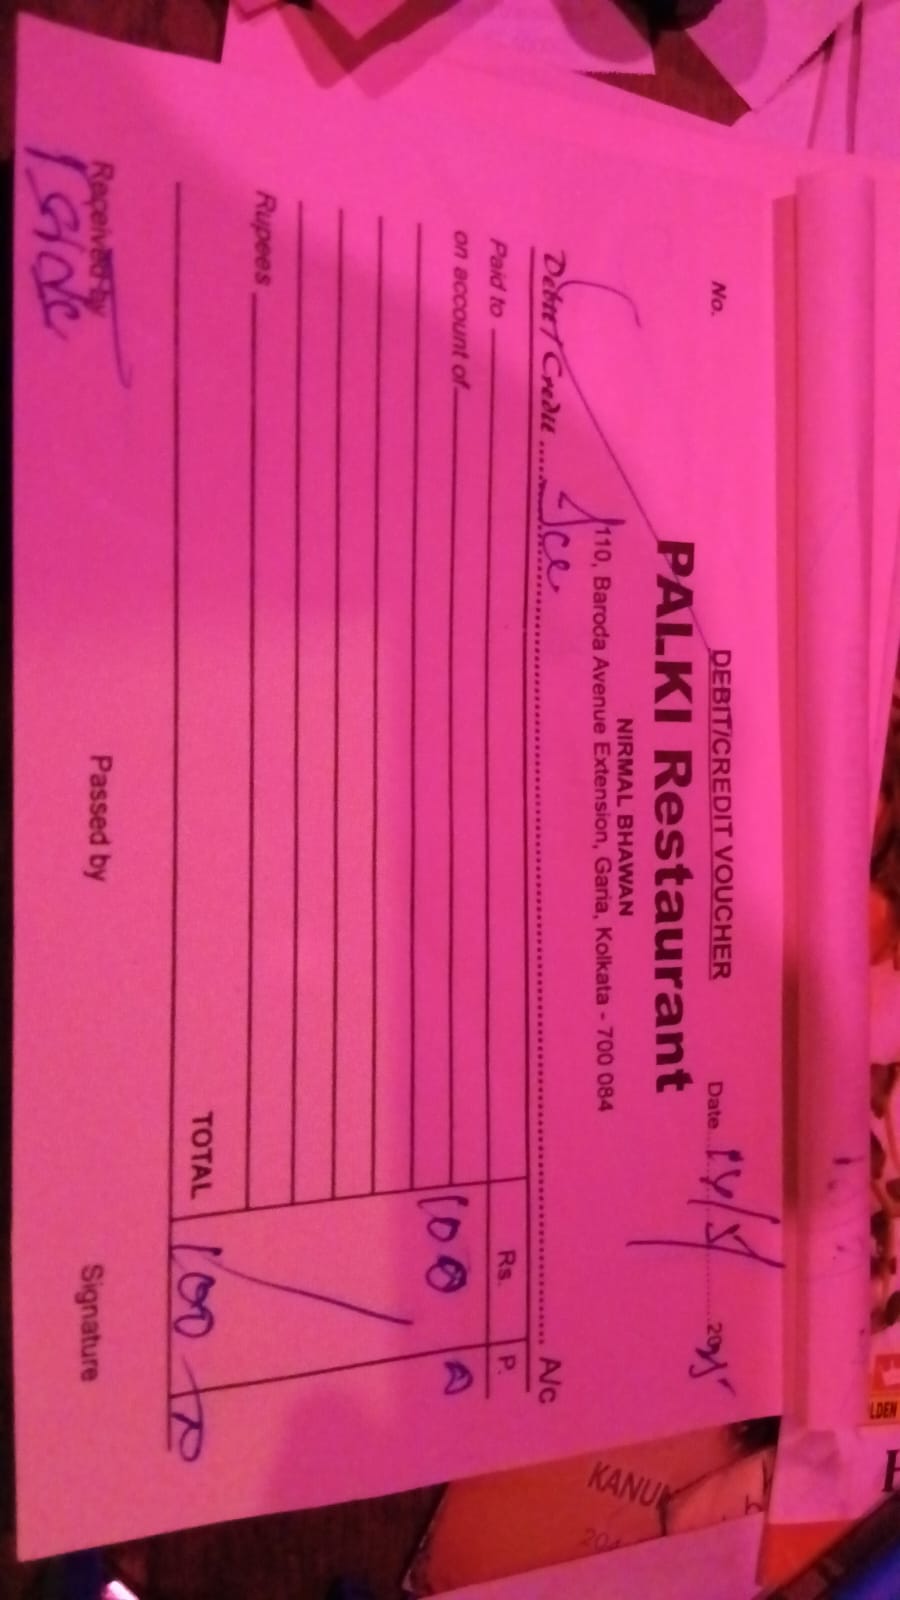 DEBIT/CREDIT VOUCHER
No.
Date 14/5/ 2025
PALKI Restaurant
NIRMAL BHAWAN
110, Baroda Avenue Extension, Garia, Kolkata - 700 084
Debit / Credit ........ Ice ........ A/c
Paid to
Rs. P.
on account of
100 0
Rupees
TOTAL 100
Received by
Passed by
Signature
KANU
LDEN
H